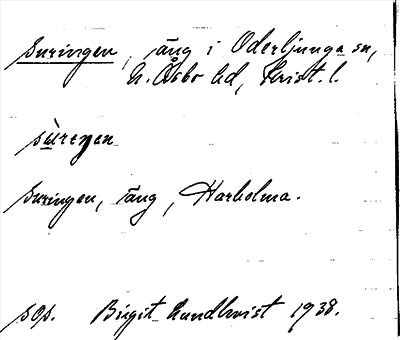 Suringen, äng i Oderljunga sn,
N. Åsbo hd, Krist. l.
sùreŋen
Suringen, äng, Harholma.
sop. Birgit Lundkvist 1938.